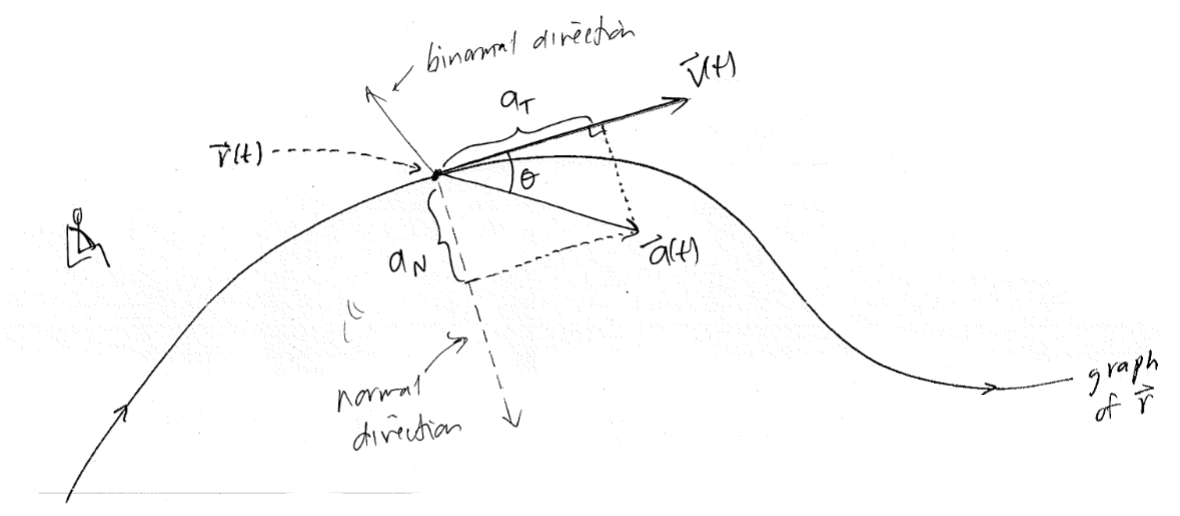 binormal direction
v⃗(t)
a_T
r⃗(t)
θ
a⃗(t)
a_N
normal
direction
graph
of r⃗